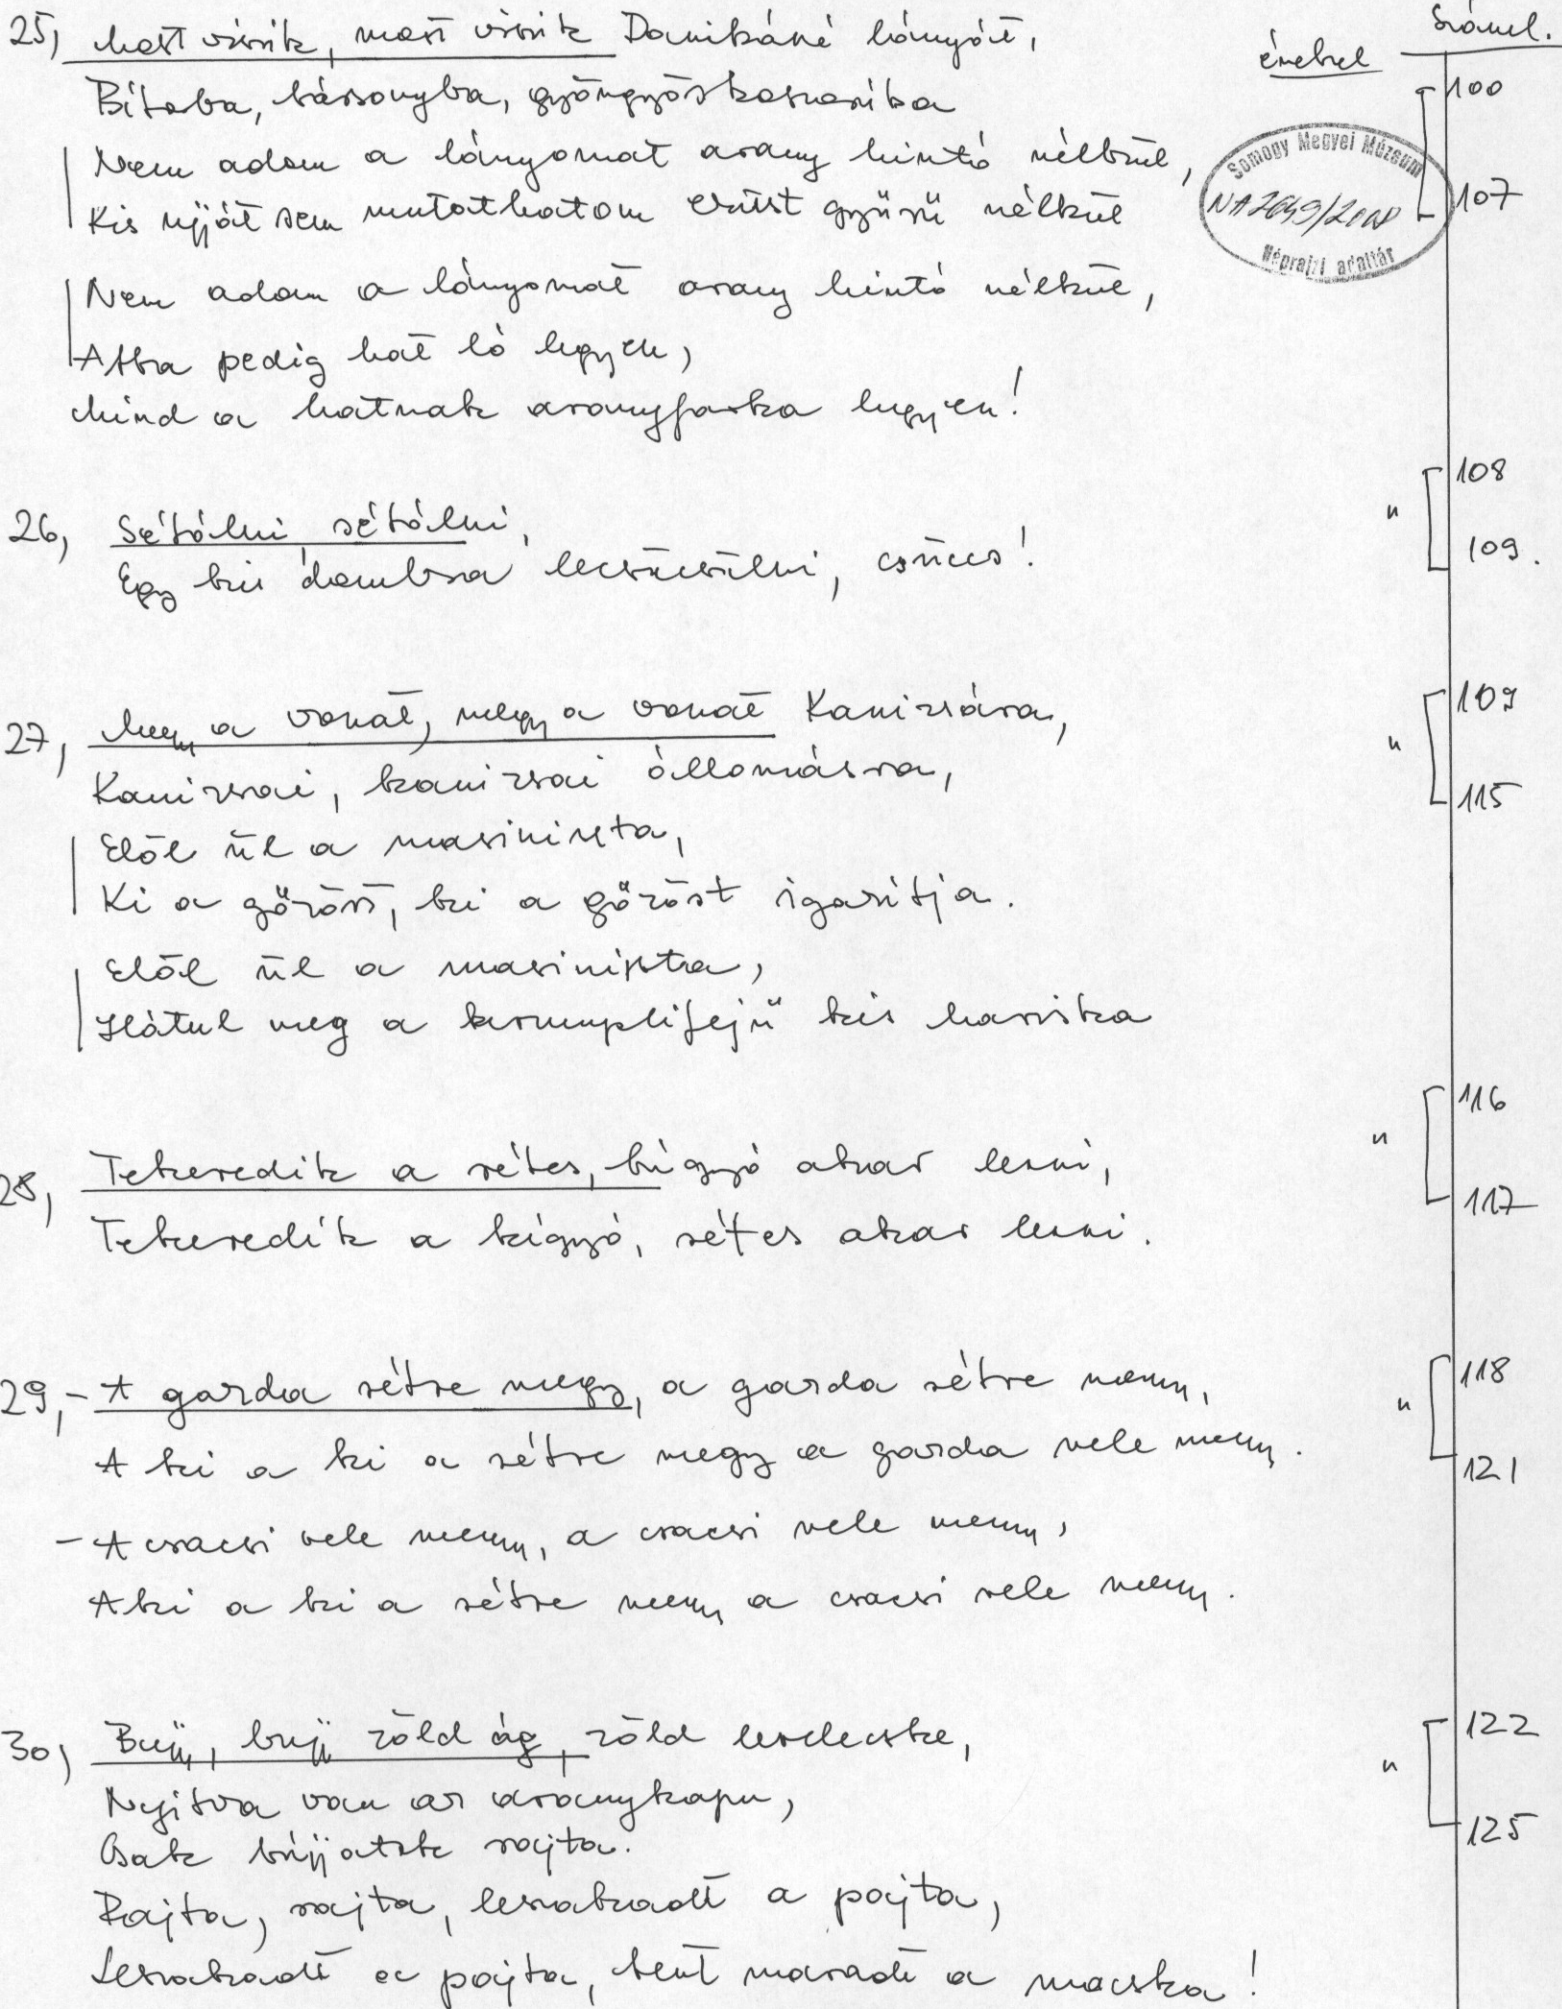 száml.
énekel
25, Most viszik, most viszik Danikáné lányát,
100
Bíborba, bársonyba, gyöngyös koszorúba
Nem adom a lányomat arany hintó nélkül,
Somogy Megyei Múzeum
Kis ujját sem mutathatom ezüst gyűrű nélkül
107
Néprajzi adattár
Nem adom a lányomat arany hintó nélkül,
Abba pedig hat ló legyen,
Mind a hatnak aranyfarka legyen!
108
26, Sétálni sétálni,
"
109.
Egy kis dombra lecsücsülni, csüccs!
109
27, Megy a vonat, megy a vonat Kanizsára,
"
Kanizsai, kanizsai állomásra,
115
Elől ül a masiniszta,
Ki a gőzöst, ki a gőzöst igazítja.
Elől ül a masiniszta,
Hátul meg a krumplifejű kis Mariska
116
"
28, Tekeredik a rétes, kígyó akar lenni,
117
Tekeredik a kígyó, rétes akar lenni.
118
29, - A garda rétre megy, a garda rétre megy,
"
A ki a ki a rétre megy a garda vele megy.
121
- A csacsi vele megy, a csacsi vele megy,
A ki a ki a rétre megy a csacsi vele megy.
122
30, Bujj, bujj zöld ág, zöld levelecske,
"
Nyitva van az aranykapu,
125
Csak bújjatok rajta.
Rajta, rajta, leszakadt a pajta,
Leszakadt a pajta, bent maradt a macska!